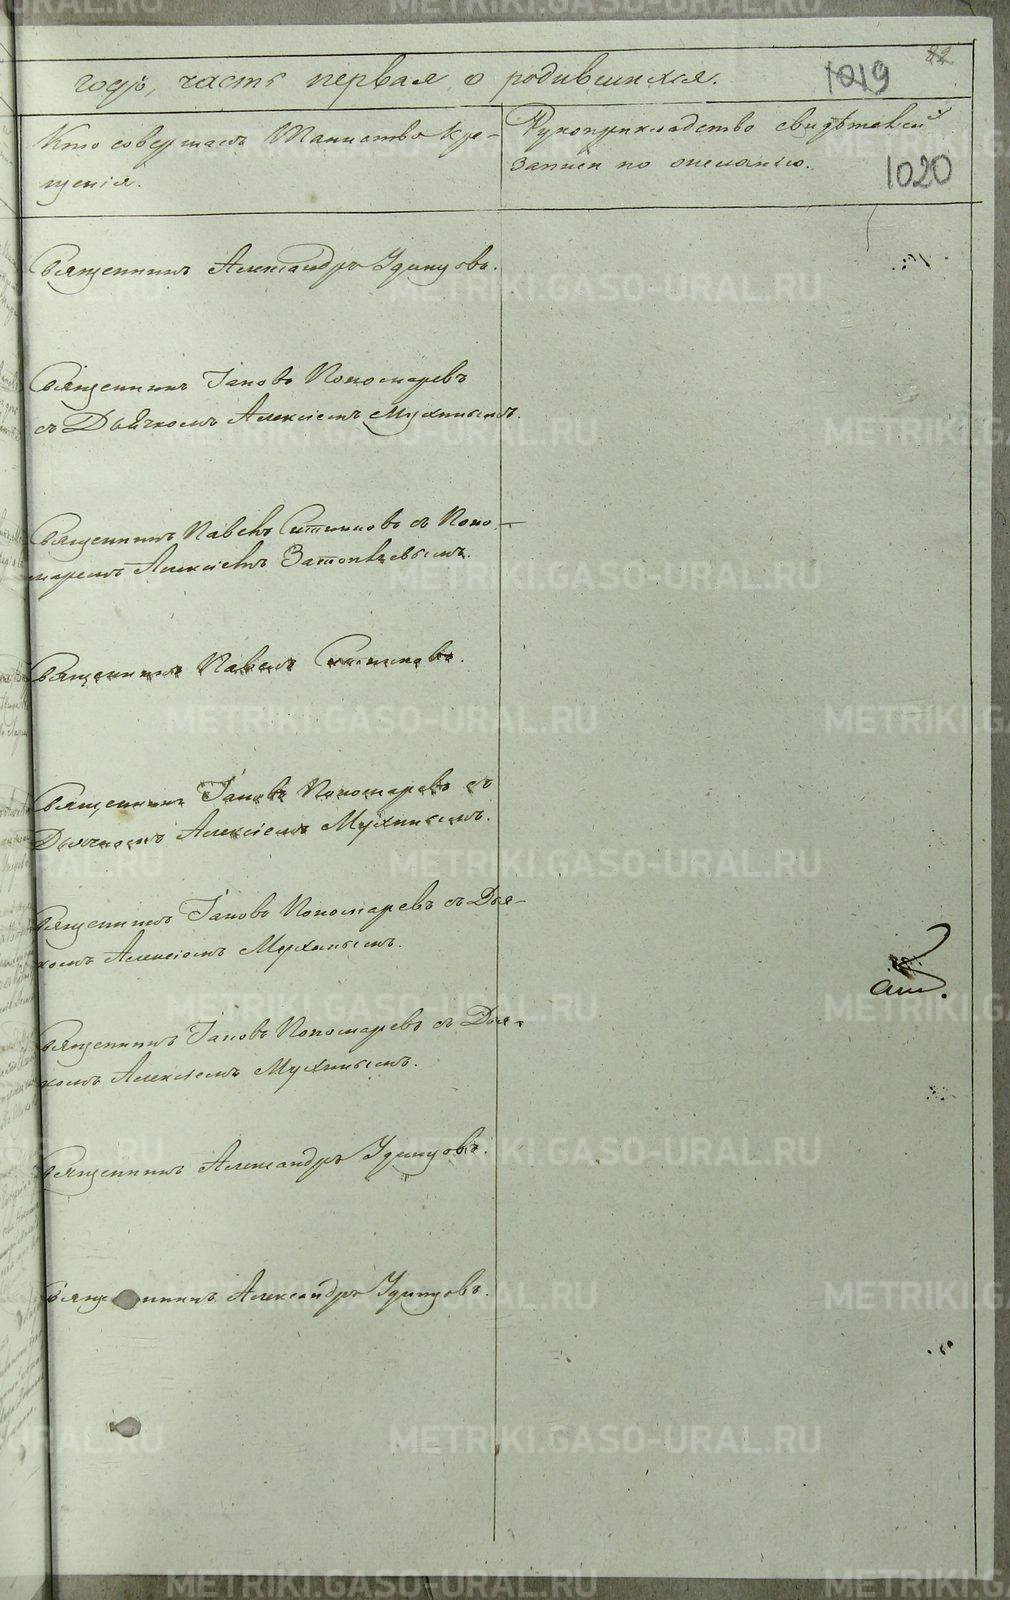 годъ, часть первая о родившихся.
1019
82
Кто совершалъ Таинство Кре-
щенія.
Рукоприкладство свидѣтелей
записи по желанію.
1020
Священникъ Александръ Удинцовъ.
Священникъ Іаковъ Пономаревъ
съ Дьячкомъ Алексіемъ Мухинымъ.
Священникъ Павелъ Ситниковъ съ Поно-
маремъ Алексіемъ
Священникъ Павелъ Ситниковъ.
Священникъ Іаковъ Пономаревъ съ
Дьячкомъ Алексіемъ Мухинымъ.
Священникъ Іаковъ Пономаревъ съ Дья-
комъ Алексіемъ Мухинымъ.
Священникъ Іаковъ Пономаревъ съ Дья-
комъ Алексіемъ Мухинымъ.
Священникъ Александръ Удинцовъ.
Священникъ Александръ Удинцовъ.
METRIKI.GASO-URAL.RU